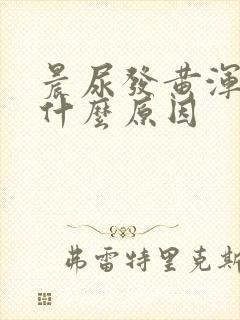 晨尿發黃渾
什麼原因
弗雷特里克斯